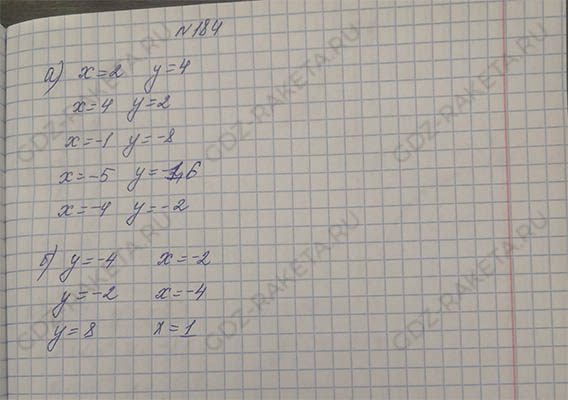 N184
а) x=2 y=4
x=4 y=2
x=-1 y=-8
x=-5 y=-1,6
x=-4 y=-2
б) y=-4 x=-2
y=-2 x=-4
y=8 x=1
GDZ-RAKETA.RU
GDZ-RAKETA.RU
GDZ-RAKETA.RU
GDZ-RAKETA.RU
GDZ-RAKETA.RU
GDZ-RAKETA.RU